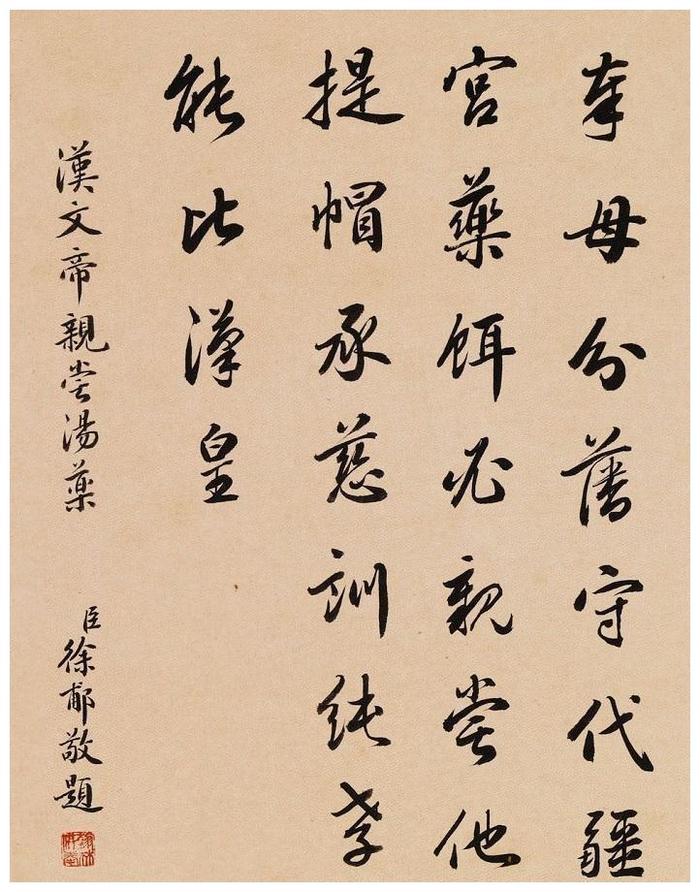 奉母分藩守代疆
宮藥餌必親嘗他
提帽承慈訓純孝
能比漢皇
漢文帝親嘗湯藥
臣徐郙敬題